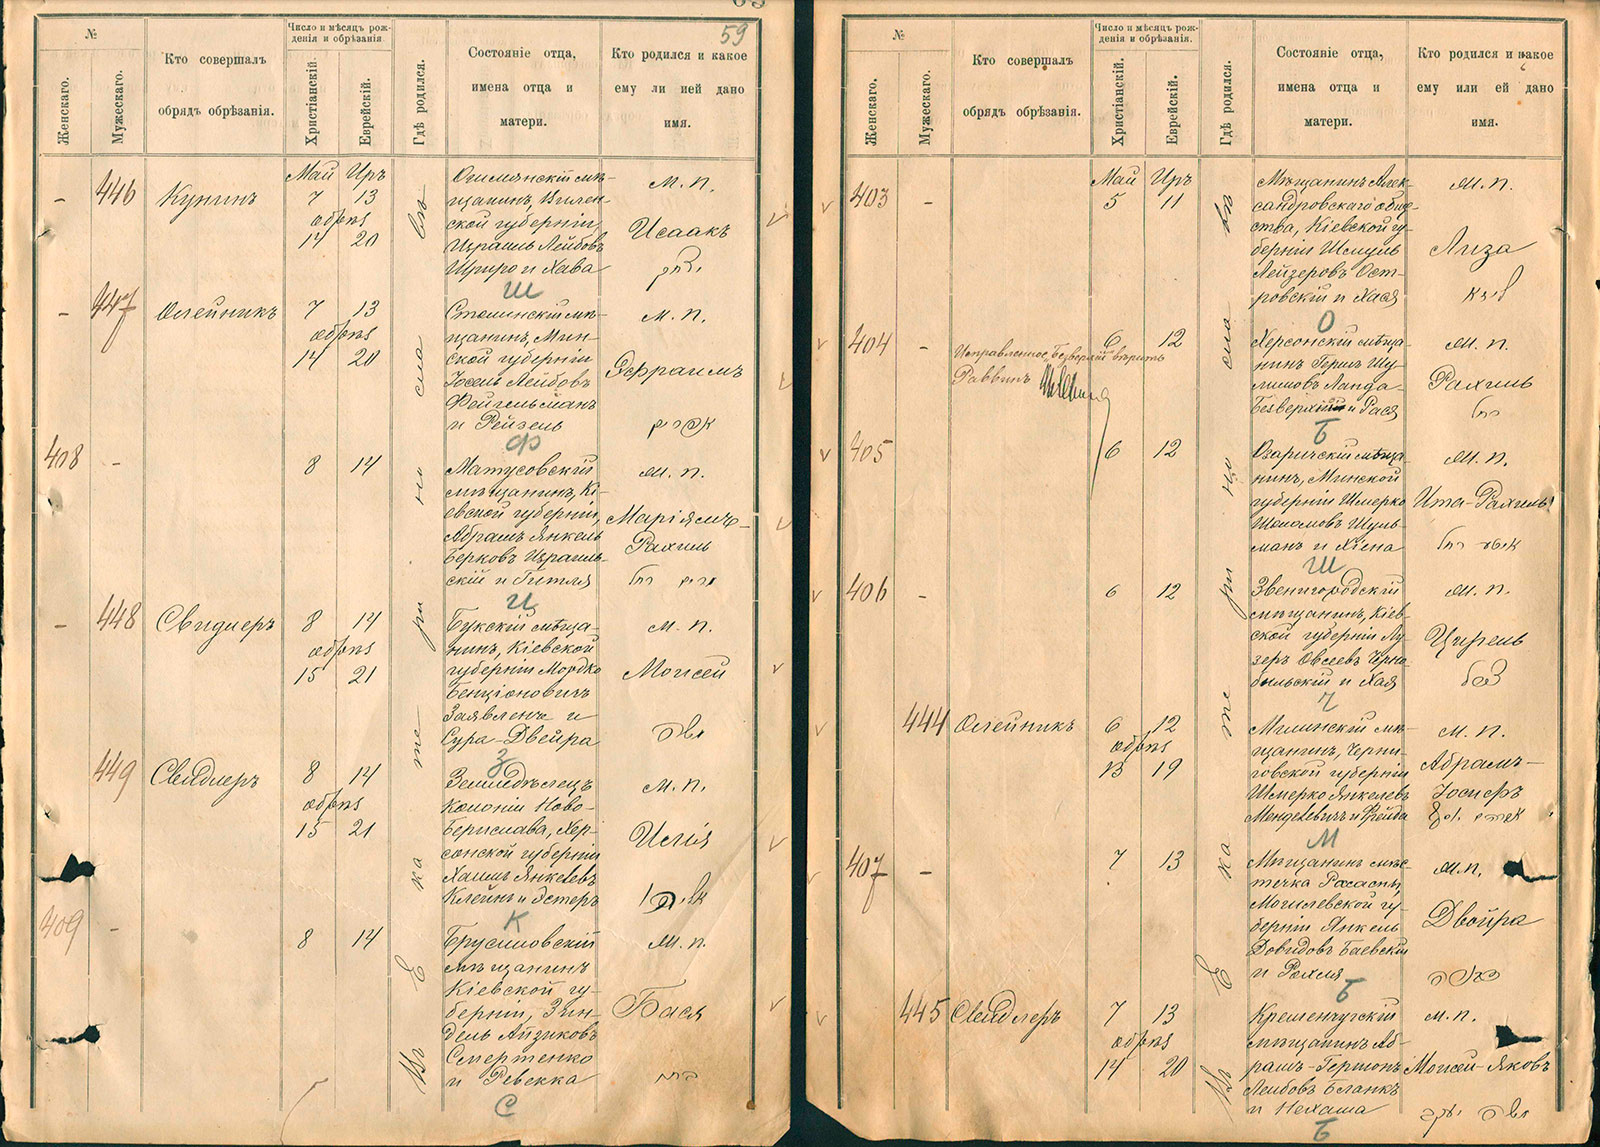 59
№
Женскаго.
Мужескаго.
Кто совершалъ
обрядъ обрѣзанія.
Число и мѣсяцъ рож-
денія и обрѣзанія.
Христіанскій.
Еврейскій.
Гдѣ родился.
Состояніе отца,
имена отца и
матери.
Кто родился и какое
ему ли ией дано
имя.
Въ Екатеринославѣ
- 446 Кунинъ
Май Иръ
7 13
обрѣз
14 20
Ошмянскій мѣ-
щанинъ, Вилен-
ской губерніи,
Израиль Лейбовъ
Шпиро и Хава
Ш
м. п.
Исаакъ
יצחק
- 447 Олейникъ
7 13
обрѣз
14 20
Столинскій мѣ-
щанинъ, Мин-
ской губерніи
Іосель Лейбовъ
Фейгельманъ
и Рейзель
Ф
м. п.
Эфраимъ
אפרים
408 -
8 14
Матусовскій
мѣщанинъ, Кі-
евской губерніи,
Абрамъ Янкель
Берковъ Израиль-
скій и Гитля
И
м. п.
Маріямъ-
Рахиль
מרים רחל
- 448 Свидлеръ
8 14
обрѣз
15 21
Букскій мѣща-
нинъ, Кіевской
губерніи Мордко
Бенціоновичъ
Заявленъ и
Сура-Двейра
З
м. п.
Моисей
משה
449 Свидлеръ
8 14
обрѣз
15 21
Земледѣлецъ
колоніи Ново-
Берислава, Хер-
сонской губерніи
Хаимъ Янкелевъ
Клейнъ и Эстеръ
К
м. п.
Илія
409 -
8 14
Брусиловскій
мѣщанинъ
Кіевской гу-
берніи, Зин-
дель Айзиковъ
Смертенко
и Ревекка
С
м. п.
Бася
בתי
№
Женскаго.
Мужескаго.
Кто совершалъ
обрядъ обрѣзанія.
Число и мѣсяцъ рож-
денія и обрѣзанія.
Христіанскій.
Еврейскій.
Гдѣ родился.
Состояніе отца,
имена отца и
матери.
Кто родился и какое
ему или ей дано
имя.
Въ Екатеринославѣ
403 -
Май Иръ
5 11
Мѣщанинъ Алек-
сандровскаго обще-
ства, Кіевской гу-
берніи Шмуиль
Лейзеровъ Ост-
ровскій и Хася
О
м. п.
Лиза
ליזא
404 -
Исправленное "Безверхій" вѣрить
Раввинъ
6 12
Херсонскій мѣща-
нинъ Гершъ Шу-
лимовъ Ланда-
Безверхій и Рася
Б
м. п.
Рахиль
רחל
405
6 12
Озаричскій мѣща-
нинъ, Минской
губерніи Шмерко
Шоломовъ Шуль-
манъ и Хіена
Ш
м. п.
Ита-Рахиль
איטה רחל
406 -
6 12
Звенигородскій
мѣщанинъ, Кіев-
ской губерніи Лу-
зеръ Овсеевъ Черно-
быльскій и Хая
Ч
м. п.
Цирель
444 Олейникъ
6 12
обрѣз
13 19
Мглинскій мѣ-
щанинъ, Черни-
говской губерніи
Шмерко Янкелевъ
Менделевичъ и Фейда
М
м. п.
Абрамъ-
Іосифъ
407 -
7 13
Мѣщанинъ мѣс-
течка Рясасны,
Могилевской гу-
берніи Янкель
Довидовъ Баевскій
и Рахля
Б
м. п.
Двойра
445 Свидлеръ
7 13
обрѣз
14 20
Кременчугскій
мѣщанинъ Аб-
рамъ-Герцонъ
Лейбовъ Бланкъ
и Нехама
Б
м. п.
Моисей-Яковъ
משה יעקב